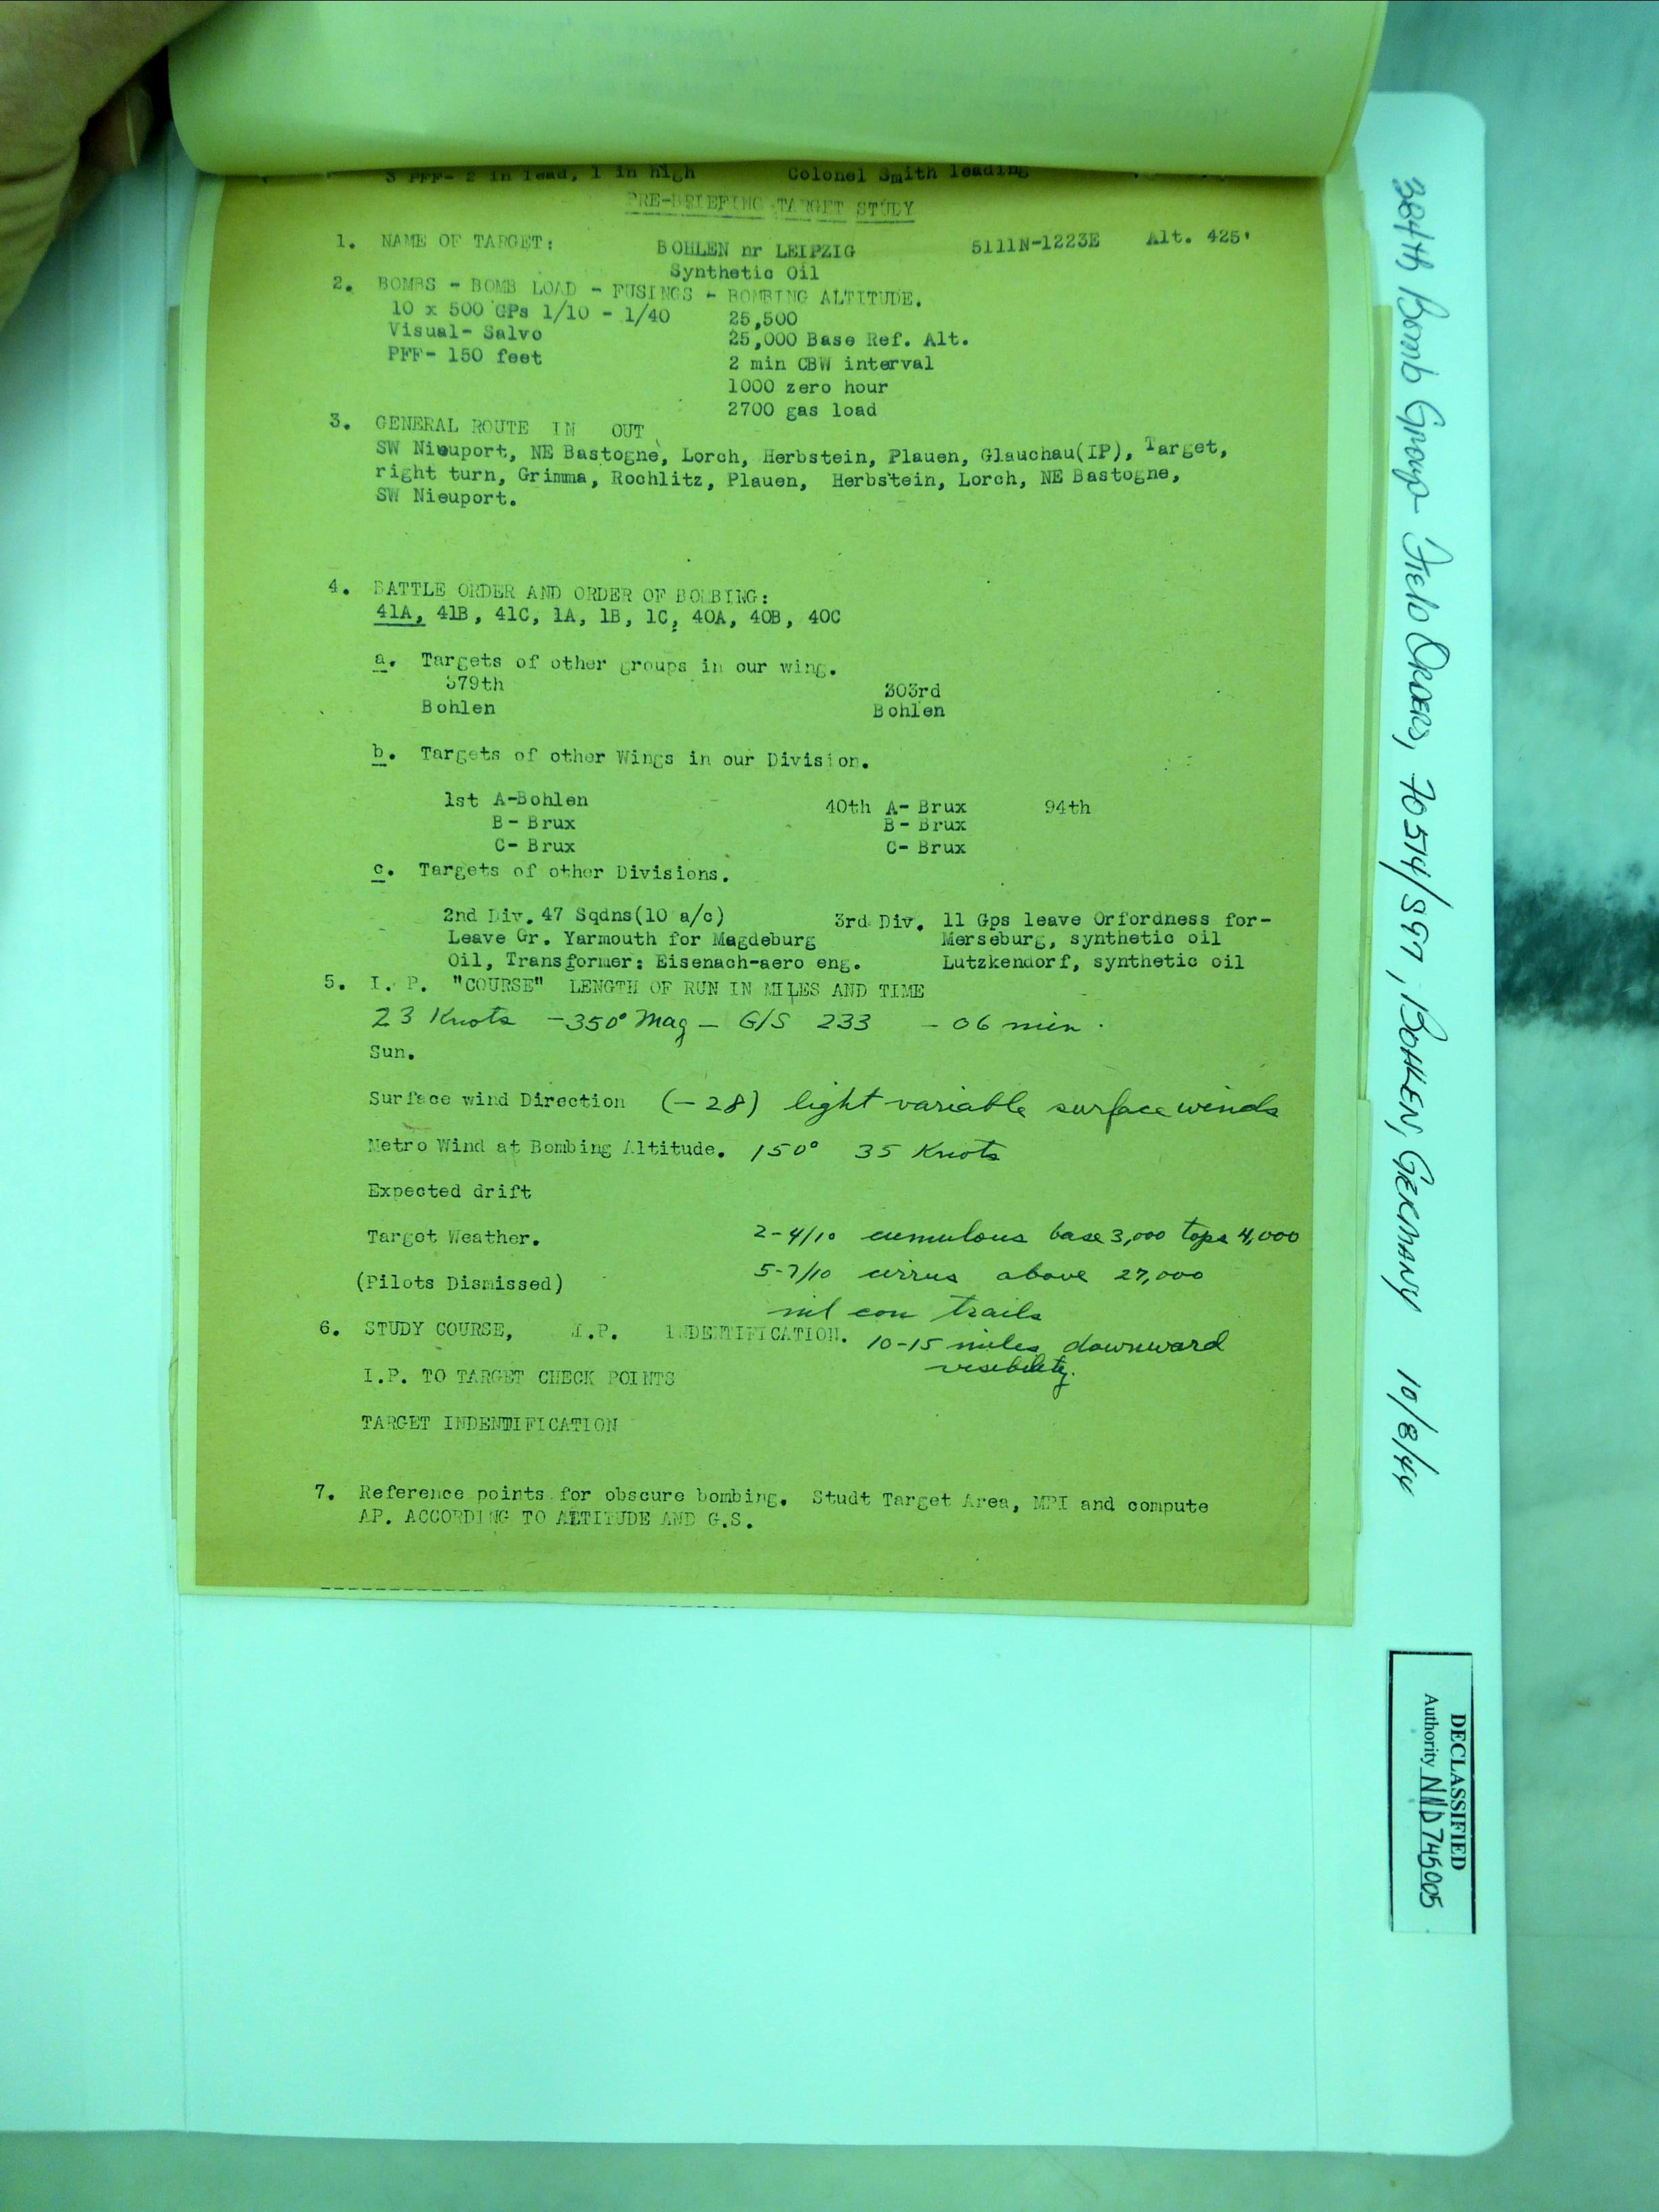 3 PFF- 2 in lead, 1 in high Colonel Smith leading
PRE-BRIEFING TARGET STUDY
1. NAME OF TARGET: BOHLEN nr LEIPZIG 5111N-1223E Alt. 425'
Synthetic Oil
2. BOMBS - BOMB LOAD - FUSINGS - BOMBING ALTITUDE.
10 x 500 GPs 1/10 - 1/40 25,500
Visual- Salvo 25,000 Base Ref. Alt.
PFF- 150 feet 2 min CBW interval
1000 zero hour
2700 gas load
3. GENERAL ROUTE IN OUT
SW Nieuport, NE Bastogne, Lorch, Herbstein, Plauen, Glauchau(IP), Target,
right turn, Grimma, Rochlitz, Plauen, Herbstein, Lorch, NE Bastogne,
SW Nieuport.
4. BATTLE ORDER AND ORDER OF BOMBING:
41A, 41B, 41C, 1A, 1B, 1C, 40A, 40B, 40C
a. Targets of other groups in our wing.
379th 303rd
Bohlen Bohlen
b. Targets of other Wings in our Division.
1st A-Bohlen 40th A- Brux 94th
B- Brux B- Brux
C- Brux C- Brux
c. Targets of other Divisions.
2nd Div. 47 Sqdns(10 a/c) 3rd Div. 11 Gps leave Orfordness for-
Leave Gr. Yarmouth for Magdeburg Merseburg, synthetic oil
Oil, Transformer: Eisenach-aero eng. Lutzkendorf, synthetic oil
5. I. P. "COURSE" LENGTH OF RUN IN MILES AND TIME
23 Knots - 350° Mag - G/S 233 - 06 min.
Sun.
Surface wind Direction (-28) light variable surface winds
Metro Wind at Bombing Altitude. 150° 35 Knots
Expected drift
Targot Weather. 2-4/10 cumulous base 3,000 tops 4,000
(Pilots Dismissed) 5-7/10 cirrus above 27,000
nil con trails
6. STUDY COURSE, I.P. INDENTIFICATION. 10-15 miles downward
visibility.
I.P. TO TARGET CHECK POINTS
TARGET INDENTIFICATION
7. Reference points for obscure bombing. Studt Target Area, MPI and compute
AP. ACCORDING TO ALTITUDE AND G.S.
384th Bomb Group Field Orders, FO 514/597, Bohlen, Germany 10/8/44
DECLASSIFIED
Authority NND 745005